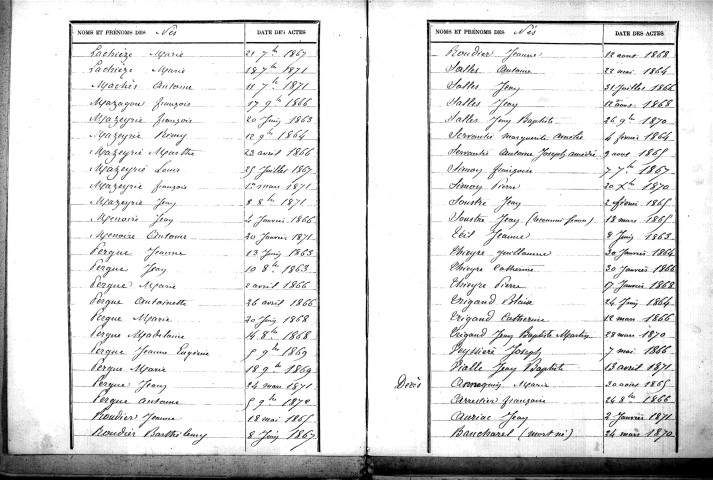 NOMS ET PRÉNOMS DES Nés DATE DES ACTES
Lachièze Marie 21 7bre 1867
Lachièze Marie 18 7bre 1871
Machès Antoine 11 7bre 1871
Mazagou françois 17 9bre 1866
Mazeyrié françois 20 Juin 1863
Mazeyrié Remy 12 9bre 1864
Mazeyrié Marthe 23 avril 1866
Mazeyrié Louis 25 Juillet 1867
Mazeyrié françois 1er mars 1871
Mazeyrié Jean 8 8bre 1871
Menoire Jean 4 Janvier 1866
Menoire Antoine 20 Janvier 1871
Pergue Jeanne 13 Juin 1863
Pergue Jean 10 8bre 1863
Pergue Marie 2 avril 1866
Pergue Antoinette 26 avril 1866
Pergue Marie 20 Juin 1868
Pergue Madelaine 14 8bre 1868
Pergue Jeanne Eugénie 5 9bre 1869
Pergue Marie 18 9bre 1869
Pergue Jean 24 mars 1871
Pergue Antoine 5 9bre 1872
Roudier Jeanne 18 mai 1865
Roudier Barthélemy 8 Juin 1867
NOMS ET PRÉNOMS DES Nés DATE DES ACTES
Roudier Jeanne 12 aout 1868
Salles Antoine 22 mai 1864
Salles Jean 31 Juillet 1866
Salles Jean 12 aout 1868
Salles Jean Baptiste 26 9bre 1870
Servantie marguerite 4 février 1864
Servantie Antoine Joseph amédé 9 aout 1865
Simon françoise 7 7bre 1867
Simon Pierre 20 Xbre 1870
Soustre Jean 2 février 1865
Soustre Jean 18 mars 1865
Teil Jeanne 8 Juin 1863
Thieyre guillaume 30 Janvier 1864
Thieyre Catherine 30 Janvier 1866
Thieyre Pierre 17 Janvier 1868
Trigand Blaise 24 Juin 1864
Trigand Catherine 12 mars 1866
Trigand Jean Baptiste Martin 28 mars 1870
Veyssière Joseph 7 mai 1866
Vialle Jean Baptiste 13 avril 1871
Décès Marie 30 aout 1865
Arrestier françoise 24 8bre 1866
Auriac Jean 2 Janvier 1871
Bancharel (mort né) 24 mars 1870